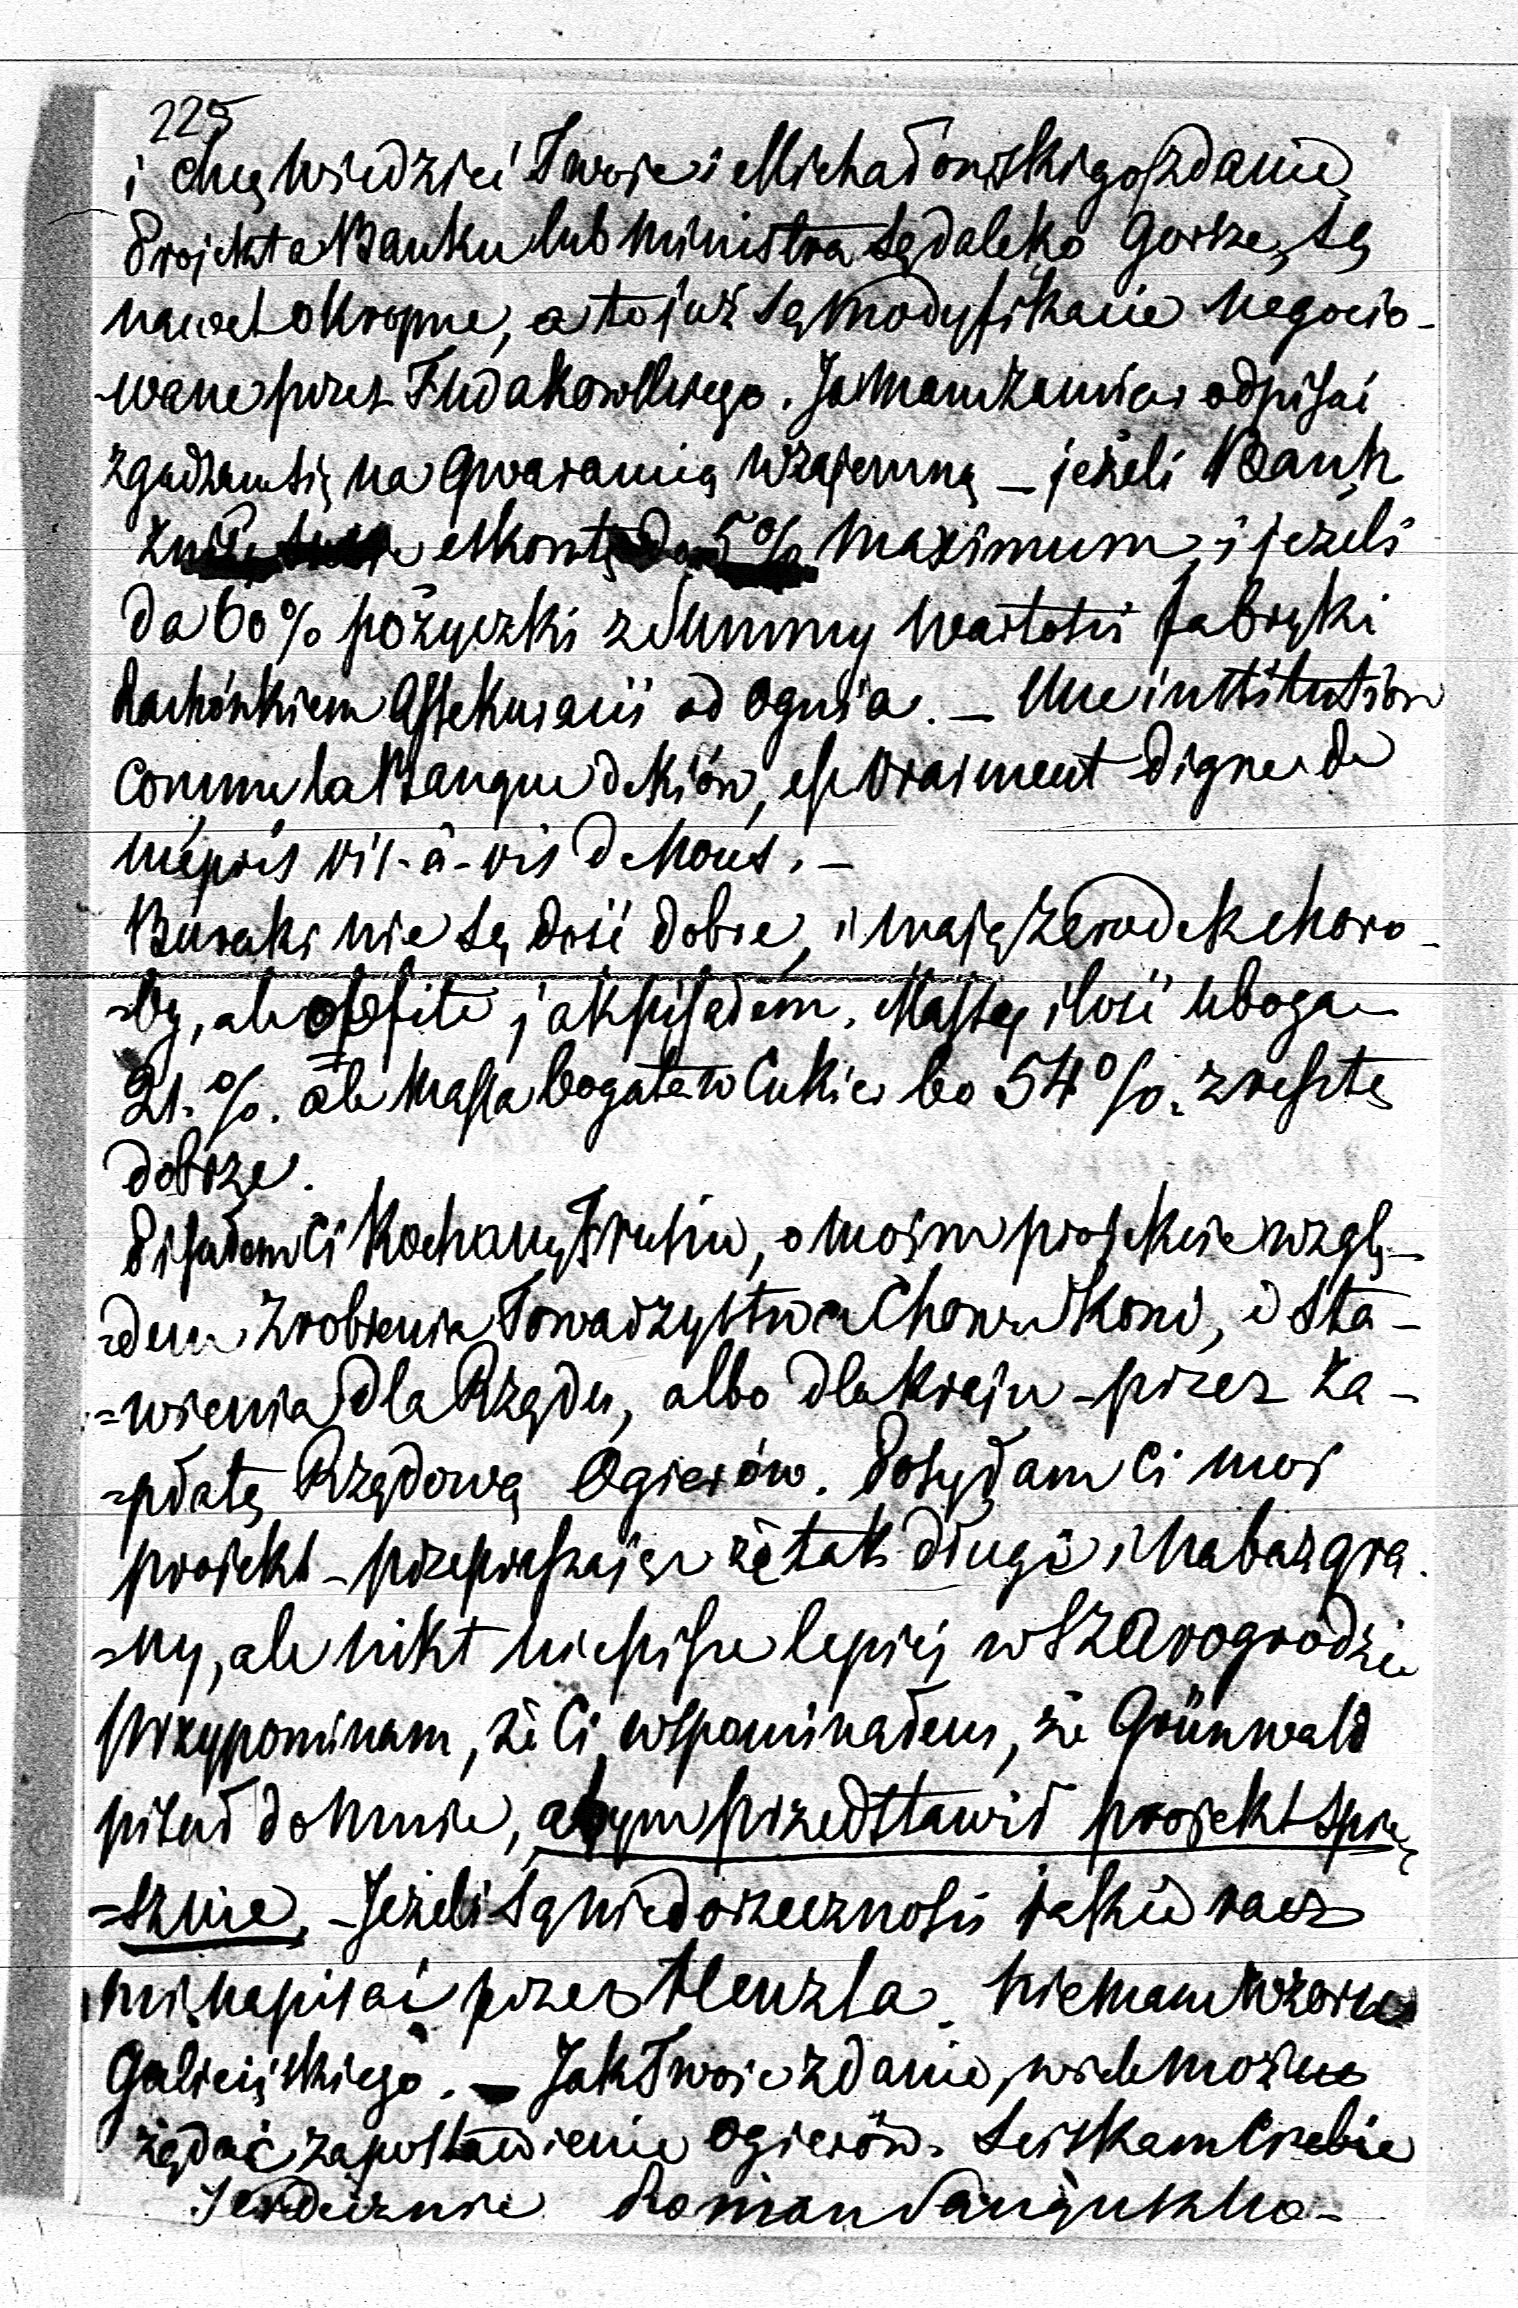 225
i chcę wiedzieć Twoie i Michałowskiego zdanie,
Projekta Banku lub Ministra są daleko gorsze, są
nawet okropne, a to już są modyfikacie negocio-
-wane przez Fudakowskiego. Ja mam zamiar odpisać
zgadzam się na gwarancią wzajemną – jeżeli Bank
zniży eskontę do 5% maximum, i jeżeli
da 60% pożyczki z Summy wartości fabryki
rachónkiem Assekuracii od Ognia. – Une institution
comme la Banque de Kiów, est vraiment digne de
mépris vis-à-vis de nous. –
Buraki nie są dość dobre, i mają zarodek choro-
=by, ale obfite jak pisałem. Massy ilość uboga
21.%. ale Massa bogata w Cukier bo 54%. zresztą
dobrze.
Pisałem Ci Kochany Bruciu, o moim projekcie wzglę-
=dem zrobienia Towarzystwa Chowu Koni, i sta-
=wienia dla Rządu, albo dla kraju – przez za-
=płatę Rządową Ogierów. Posyłam Ci mój
projekt – przepraszając że tak długi i nabazgra-
=ny, ale nikt nie pisze lepiej w Szarogrodzie
przypominam, że Ci wspominałem, że Grünwald
pisał do mnie, abym przedstawił projekt śpie-
=sznie. – Jeżeli są niedorzeczności jakie racz
mi napisać przez Menzla. nie mam wzoru
Galicijskiego. – Jak Twoie zdanie, wiele można
żądać za postawienie ogierów. Sciskam Ciebie
Serdecznie Roman Sanguszko –